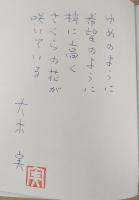 ゆめのように
希望のように
梢に高く
さくらの花が
咲いている
大木 実
実